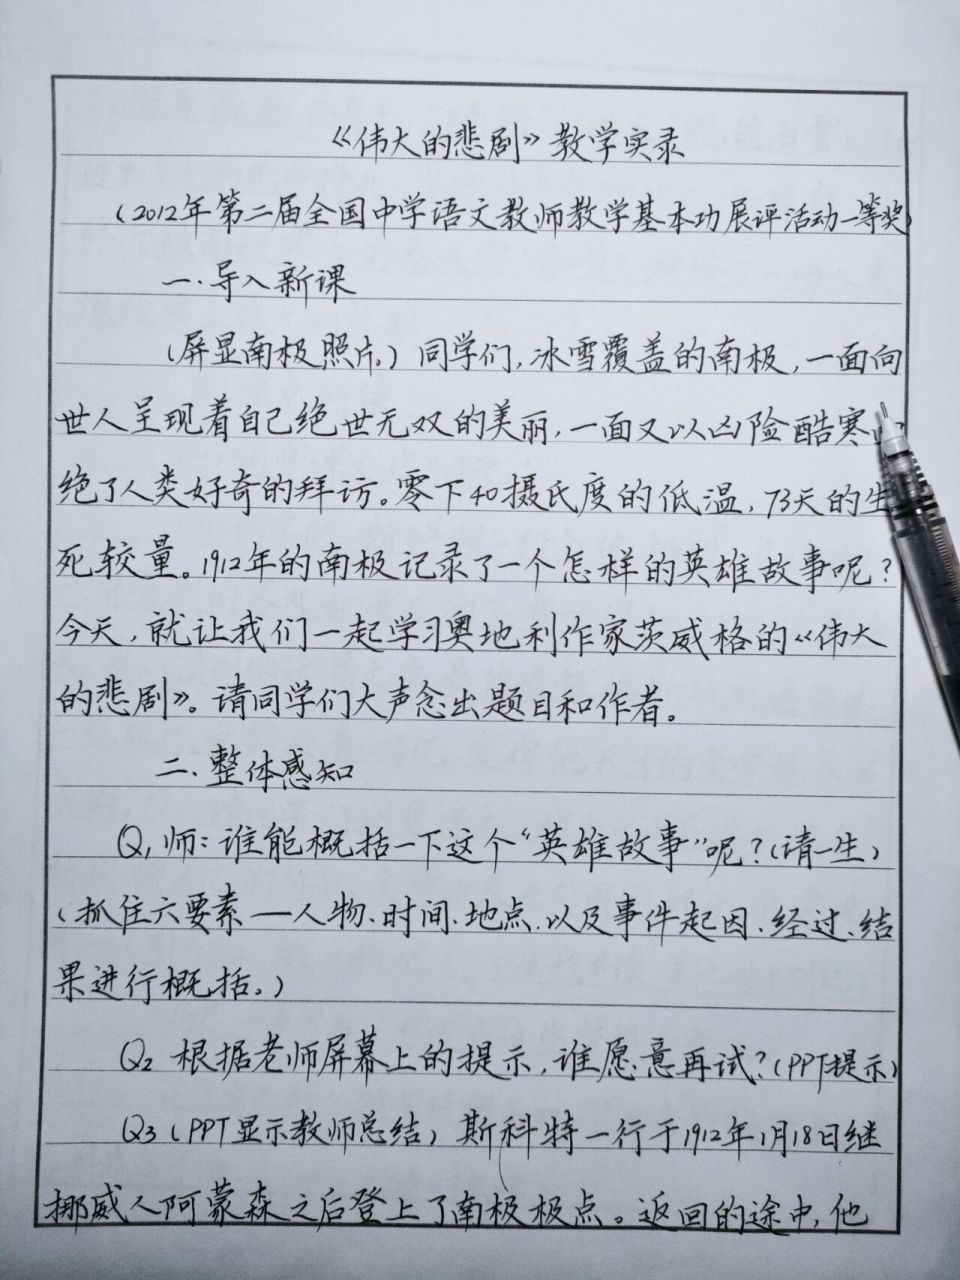 《伟大的悲剧》教学实录
(2012年第二届全国中学语文教师教学基本功展评活动一等奖)
一.导入新课
(屏显南极照片。)同学们,冰雪覆盖的南极,一面向
世人呈现着自己绝世无双的美丽,一面又以凶险酷寒
绝了人类好奇的拜访。零下40摄氏度的低温,73天的生
死较量。1912年的南极记录了一个怎样的英雄故事呢?
今天,就让我们一起学习奥地利作家茨威格的《伟大
的悲剧》。请同学们大声念出题目和作者。
二、整体感知
Q1师:谁能概括一下这个“英雄故事”呢?(请一生)
(抓住六要素——人物、时间、地点、以及事件起因、经过、结
果进行概括。)
Q2 根据老师屏幕上的提示,谁愿意再试?(PPT提示)
Q3(PPT显示教师总结)斯科特一行于1912年1月18日继
挪威人阿蒙森之后登上了南极极点。返回的途中,他